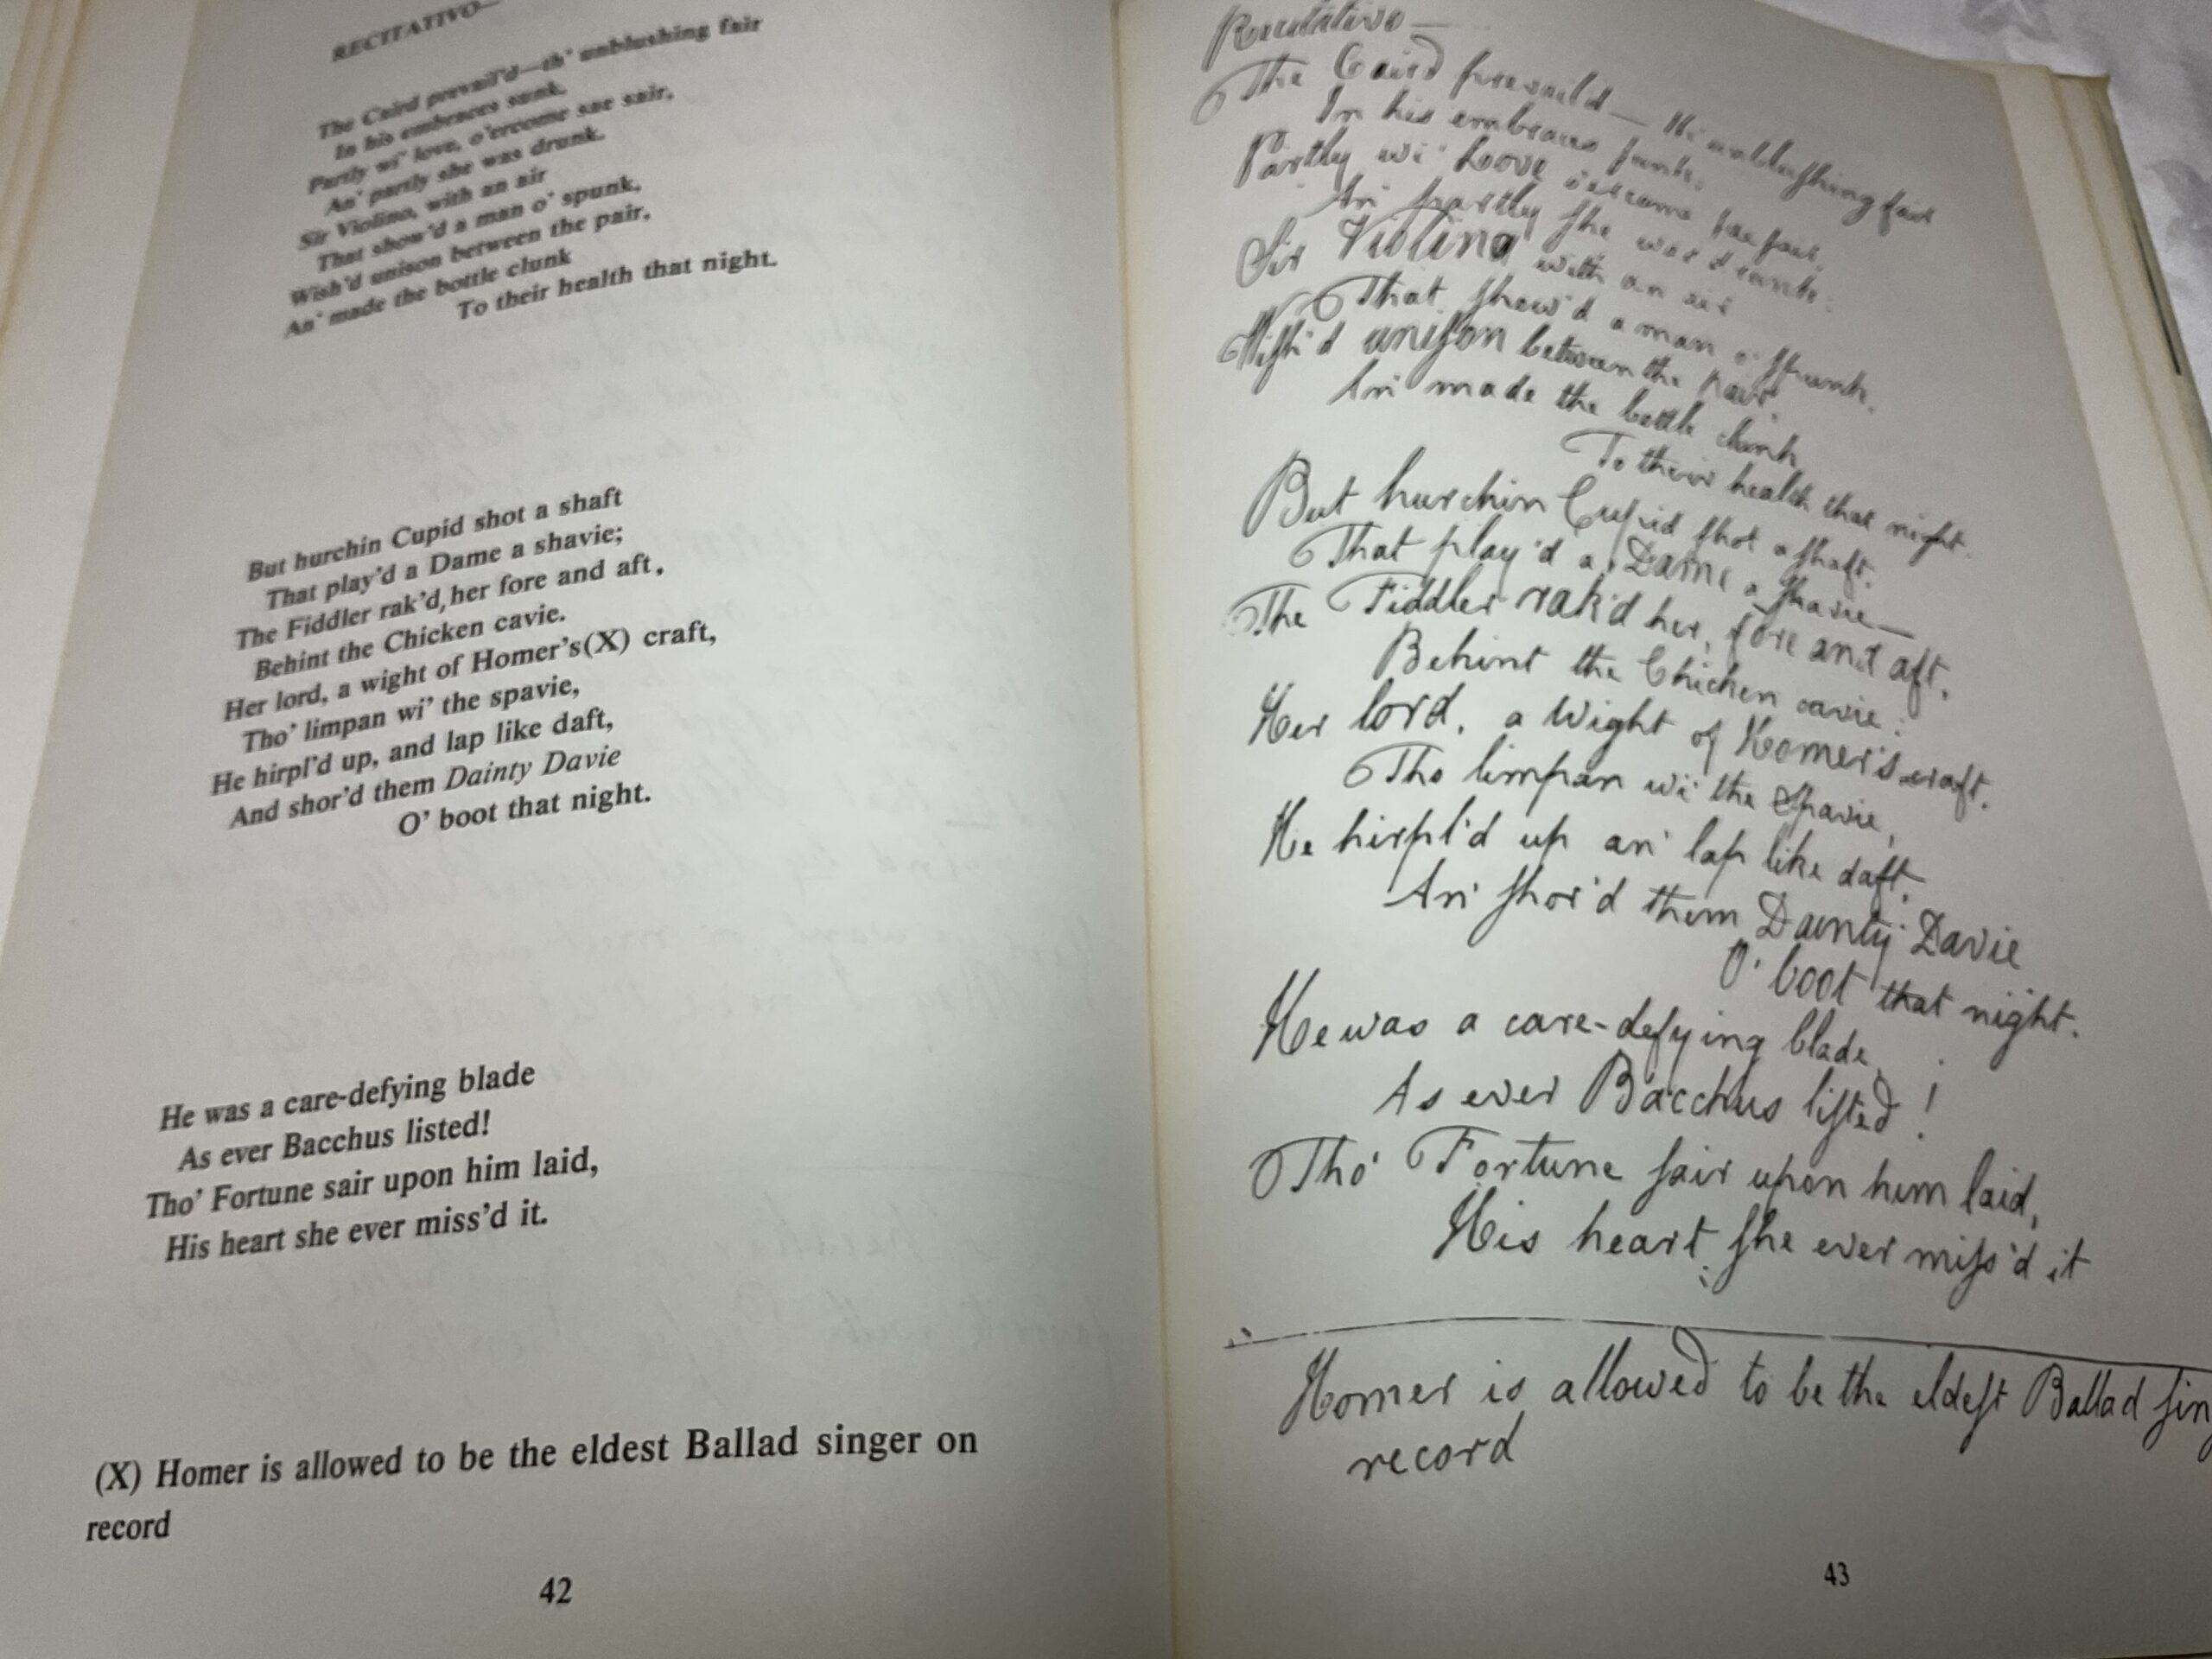 RECITATIVO—
The Caird prevail'd—th' unblushing fair
In his embraces sunk,
Partly wi' love, o'ercome sae sair,
An' partly she was drunk.
Sir Violino, with an air
That show'd a man o' spunk,
Wish'd unison between the pair,
An' made the bottle clunk
To their health that night.
But hurchin Cupid shot a shaft
That play'd a Dame a shavie;
The Fiddler rak'd, her fore and aft,
Behint the Chicken cavie.
Her lord, a wight of Homer's(X) craft,
Tho' limpan wi' the spavie,
He hirpl'd up, and lap like daft,
And shor'd them Dainty Davie
O' boot that night.
He was a care-defying blade
As ever Bacchus listed!
Tho' Fortune sair upon him laid,
His heart she ever miss'd it.
(X) Homer is allowed to be the eldest Ballad singer on
record
42
Recitativo—
The Caird prevail'd— th' unbluſhing fair
In his embraces ſunk;
Partly wi' Love o'ercome ſae ſair,
An' partly ſhe was drunk:
Sir Violino with an air
That ſhow'd a man o' ſpunk,
Wiſh'd uniſon between the pair,
An' made the bottle clunk
To their health that night.
But hurchin Cupid ſhot a ſhaft,
That play'd a Dame a ſhavie—
The Fiddler rak'd her, fore and aft,
Behint the Chicken cavie:
Her lord, a wight of Homer's craft,
Tho' limpan wi' the Spavie,
He hirpl'd up an' lap like daft,
An' ſhor'd them Dainty Davie
O' boot that night.
He was a care-defying blade,
As ever Bacchus liſted!
Tho' Fortune ſair upon him laid,
His heart ſhe ever miſs'd it
Homer is allowed to be the eldeſt Ballad
record
43